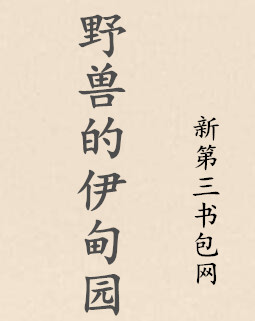 野兽的伊甸园
新第三书包网